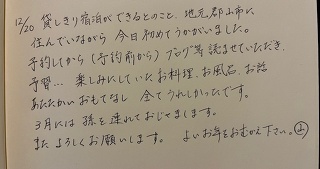 12/20 貸しきり宿泊ができるとのこと、地元郡山市に
住んでいながら 今日初めてうかがいました。
予約してから(予約前から)ブログ等読ませていただき、
予習… 楽しみにしていたお料理、お風呂、お話
あたたかいおもてなし 全てうれしかったです。
3月には 孫を連れておじゃまします。
また よろしくお願いします。 よいお年をおむかえ下さい。